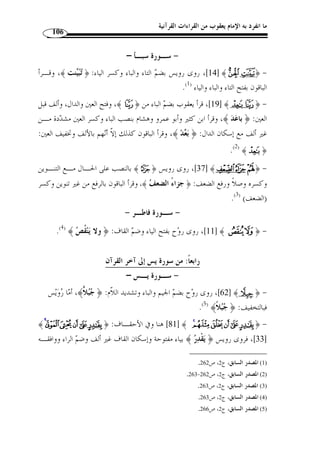 ما انفرد به الإمام يعقوب من القراءات القرآنية
106
– ســـورة سبـــأ –
– ﴿ تَبَيَّنَتِ ٱلْجِنُّ ﴾ [14]، روى رويس بضمّ التاء والباء وكسر الياء: ﴿ تُبُيِّنت ﴾، وقـــرأ
الباقون بفتح التاء والباء والياء (1).
– ﴿ رَبَّنَا بَٰعِدْ ﴾ [19]، قرأ يعقوب بضمّ الباء من ﴿ رَبُّنَا ﴾، وفتح العين والدال، وألف قبل
العين: ﴿ بَاعَدَ ﴾، وقرأ ابن كثير وأبو عمرو وهشام بنصب الباء وكسر العين مشدّدة مـــن
غير ألف مع إسكان الدال: ﴿ بَعِّدْ ﴾، وقرأ الباقون كذلك إلاّ أنّهم بالألف وتخفيف العين:
﴿ بَٰعِدْ ﴾ (2).
– ﴿ جَزَآءُ ٱلضِّعْفِ ﴾ [37]، روى رويس ﴿ جَزَآءً ﴾ بالنصب على الحـــال مـــع التنـــوين
وكسره وصلاً ورفع الضعف: ﴿ جزاءً الضعفُ ﴾، وقرأ الباقون بالرفع من غير تنوين وكسر
(الضعف) (3).
– ســـورة فاطـــر –
– ﴿ وَلَا يُنقَصُ ﴾ [11]، روى روْح بفتح الياء وضمّ القاف: ﴿ ولا يَنْقُصُ ﴾ (4).
رابعاً: من سورة يس إلى آخر القرآن
– ســـورة يـــس –
– ﴿ جِبِلًّا ﴾ [62]، روى روْح بضمّ الجيم والباء وتشديد اللاّم: ﴿ جُبُلاًّ ﴾، أمّا رُوَيْس
فبالتخفيف: ﴿ جُبُلاً ﴾ (5).
– ﴿ بِقَٰدِرٍ عَلَىٰٓ أَن يَخْلُقَ مِثْلَهُم ﴾ [81] هنا وفي الأحقـــاف: ﴿ بِقَٰدِرٍ عَلَىٰٓ أَن يُحْـِۧىَ ٱلْمَوْتَىٰ ﴾
[33]، فروى رويس ﴿ يَقْدِرُ ﴾ بياء مفتوحة وإسكان القاف غير ألف وضمّ الراء ووافقـــه
(1) المصدر السابق، ج2، ص262.
(2) المصدر السابق، ج2، ص262-263.
(3) المصدر السابق، ج2، ص263.
(4) المصدر السابق، ج2، ص263.
(5) المصدر السابق، ج2، ص266.